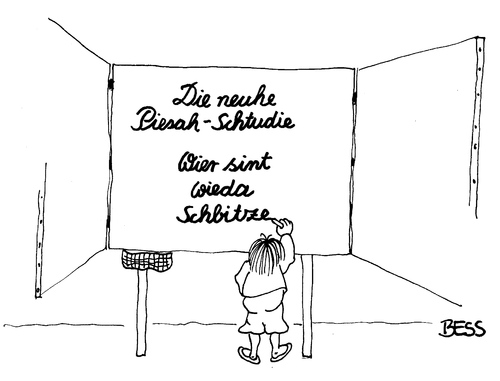 Die neuhe
Piesah-Schtudie
Wier sint
wieda
Schbitze
BESS